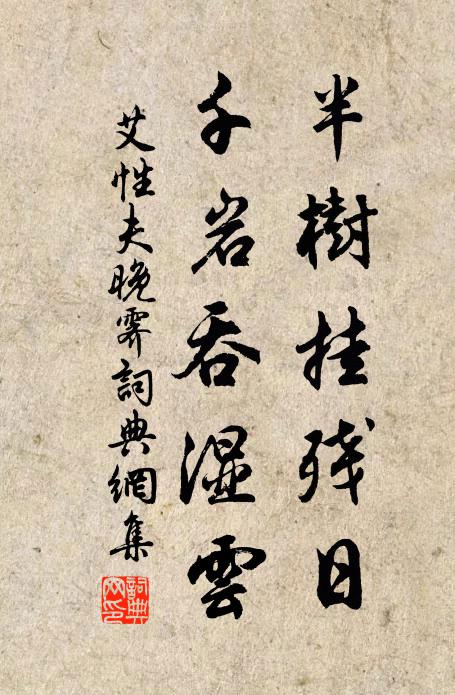 半樹挂残日
千岩吞湿雲
艾性夫晚霽詞典網集
詞典
网印